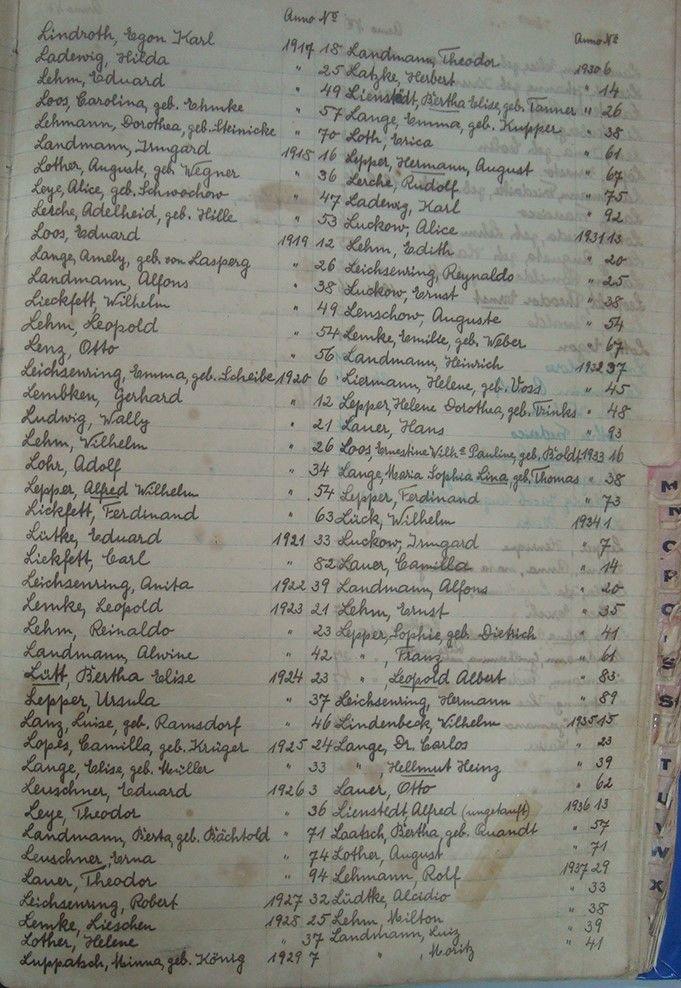 Anno Nº
Lindroth, Egon Karl 1917 18
Ladewig, Hilda " 25
Lehm, Eduard " 49
Loos, Carolina, geb. Ehmke " 57
Lehmann, Dorothea, geb. Steinicke " 70
Landmann, Irmgard 1918 16
Lother, Auguste, geb. Wegner " 36
Leye, Alice, geb. Schwochow " 47
Lerche, Adelheid, geb. Hille " 53
Loos, Eduard 1919 12
Lange, Amely, geb. von Lasperg " 26
Landmann, Alfons " 38
Lieckfett, Wilhelm " 49
Lehm, Leopold " 54
Lenz, Otto " 56
Leichsenring, Emma, geb. Scheibe 1920 6
Lembken, Gerhard " 12
Ludwig, Wally " 21
Lehm, Wilhelm " 26
Lohr, Adolf " 34
Lepper, Alfred Wilhelm " 54
Lickfett, Ferdinand " 63
Lütke, Eduard 1921 33
Lickfett, Carl " 82
Leichsenring, Anita 1922 39
Lemke, Leopold 1923 21
Lehm, Reinaldo " 23
Landmann, Alwine " 42
Lütt, Bertha Elise 1924 23
Lepper, Ursula " 37
Lanz, Luise, geb. Ramsdorf " 46
Lopes, Camilla, geb. Krüger 1925 24
Lange, Elise, geb. Müller " 33
Leuschner, Eduard 1926 3
Leye, Theodor " 36
Landmann, Berta, geb. Bächtold " 71
Leuschner, Erna " 74
Lauer, Theodor " 94
Leichsenring, Robert 1927 32
Lemke, Lieschen 1928 25
Lother, Helene " 37
Luppatsch, Minna, geb. König 1929 7
Anno Nº
Landmann, Theodor 1930 6
Latzke, Herbert " 14
Lienstädt, Bertha Elise, geb. Tanner " 26
Lange, Emma, geb. Kupper " 38
Loth, Erica " 61
Lepper, Hermann, August " 67
Lerche, Rudolf " 75
Ladewig, Karl " 92
Luckow, Alice 1931 13
Lehm, Edith " 20
Leichsenring, Reynaldo " 25
Luckow, Ernst " 38
Lenschow, Auguste " 54
Lemke, Emilie, geb. Weber " 67
Landmann, Heinrich 1932 37
Liermann, Helene, geb. Voss " 45
Lepper, Helene Dorothea, geb. Trinks " 48
Lauer, Hans " 93
Loos, Ernestine Wilhe Pauline, geb. Boldt 1933 16
Lange, Maria Sophia Lina, geb. Thomas " 38
Lepper, Ferdinand " 73
Lück, Wilhelm 1934 1
Luckow, Irmgard " 7
Lauer, Camilla " 14
Landmann, Alfons " 20
Lehm, Ernst " 35
Lepper, Sophie, geb. Dietrich " 41
" , Franz " 61
" , Leopold Albert " 83
Leichsenring, Hermann " 89
Lindenbeck, Wilhelm 1935 15
Lange, Dr. Carlos " 23
" , Hellmut Heinz " 39
Lauer, Otto " 62
Lienstedt Alfred (ungetauft) 1936 13
Laatsch, Bertha, geb. Quandt " 57
Lother, August " 71
Lehmann, Rolf 1937 29
Lüdtke, Alcidio " 33
Lehm, Milton " 38
Landmann, Luiz " 39
" , Moritz " 41
M
N
O
P
S
T
U
V
W
X